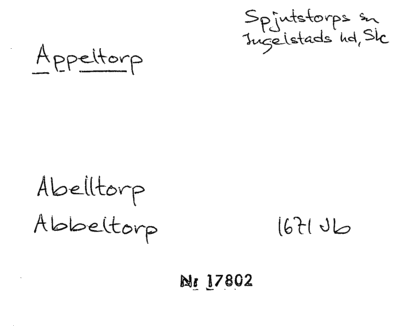 Spjutstorps sn
Ingelstads hd, Sk
Appeltorp
Abelltorp
Abbeltorp 1671 Jb
Nr 17802